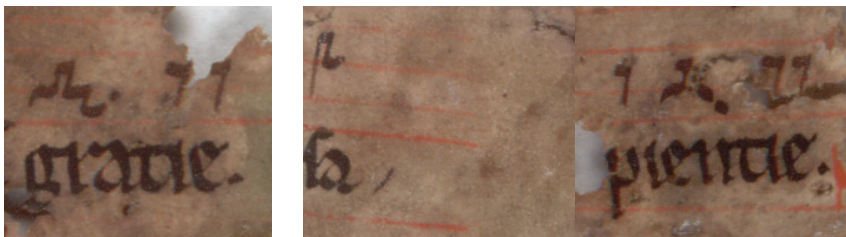 gratie. sa / pientie.